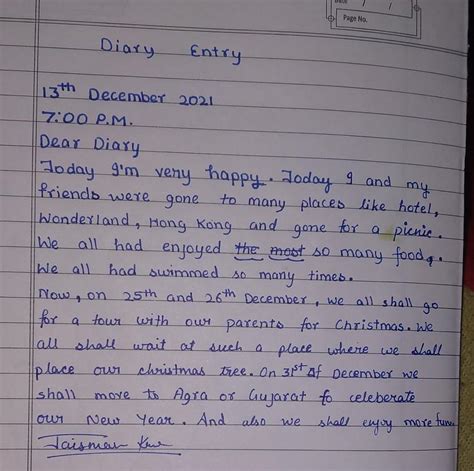 Date / /
Page No.
Diary Entry
13th December 2021
7:00 P.M.
Dear Diary
Today I'm very happy. Today I and my
friends were gone to many places like hotel,
Wonderland, Hong Kong and gone for a picnic.
We all had enjoyed the most so many food,
We all had swimmed so many times.
Now, on 25th and 26th December, we all shall go
for a tour with our parents for Christmas. We
all shall wait at such a place where we shall
place our christmas tree. On 31st of December we
shall move to Agra or Gujarat to celeberate
our New Year. And also we shall enjoy more